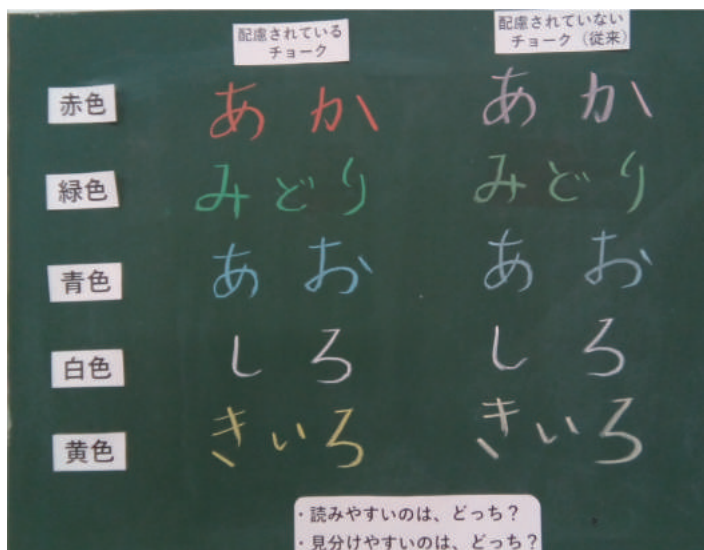 配慮されている
チョーク
配慮されていない
チョーク（従来）
赤色
あか
あか
緑色
みどり
みどり
青色
あお
あお
白色
しろ
しろ
黄色
きいろ
きいろ
・読みやすいのは、どっち？
・見分けやすいのは、どっち？